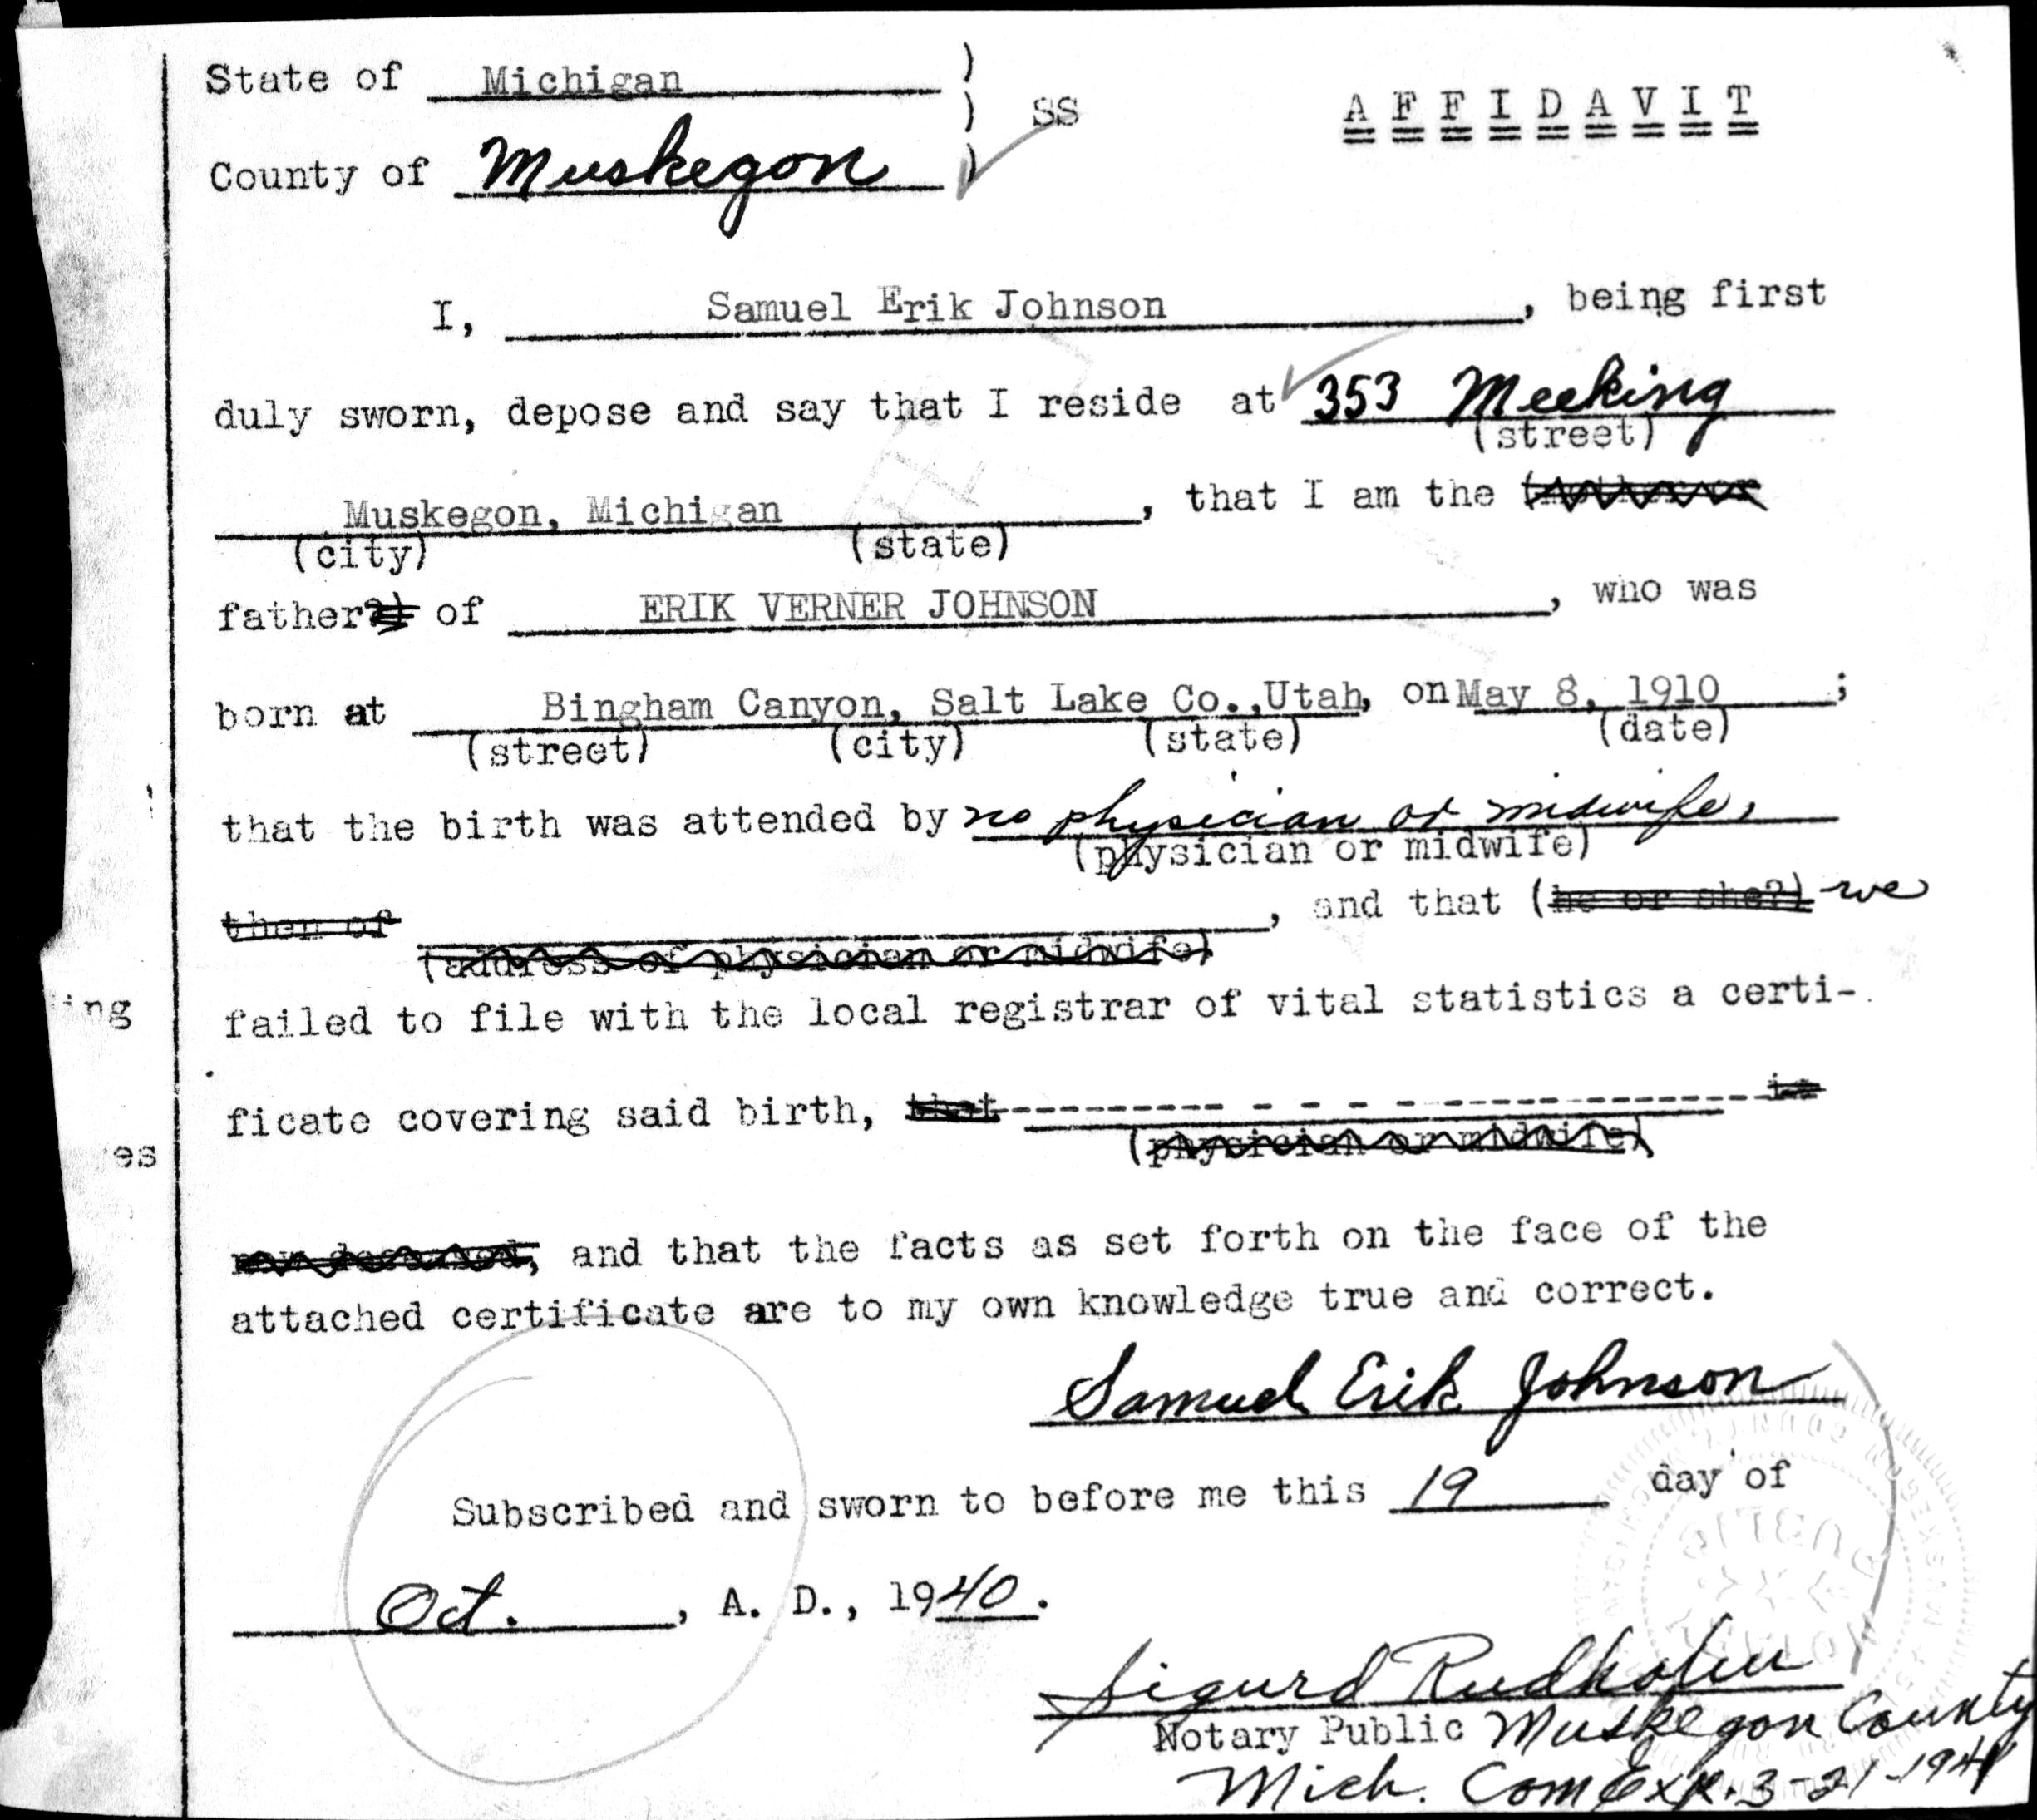 State of Michigan )
) SS
County of Muskegon )
A F F I D A V I T
I, Samuel Erik Johnson, being first
duly sworn, depose and say that I reside at 353 Meeking
(street)
Muskegon, Michigan, that I am the (mother or
(city) (state)
father?) of ERIK VERNER JOHNSON, who was
born at Bingham Canyon, Salt Lake Co., Utah, on May 8, 1910;
(street) (city) (state) (date)
that the birth was attended by no physician or midwife,
(physician or midwife)
then of , and that (he or she?) we
(address of physician or midwife)
failed to file with the local registrar of vital statistics a certi-
ing
ficate covering said birth, that ---------- - - - - ------ -------- is
(physician or midwife)
es
now deceased, and that the facts as set forth on the face of the
attached certificate are to my own knowledge true and correct.
Samuel Erik Johnson
Subscribed and sworn to before me this 19 day of
Oct., A. D., 1940.
Sigurd Rudholm
Notary Public Muskegon County
Mich. Com Exp. 3-21-1941